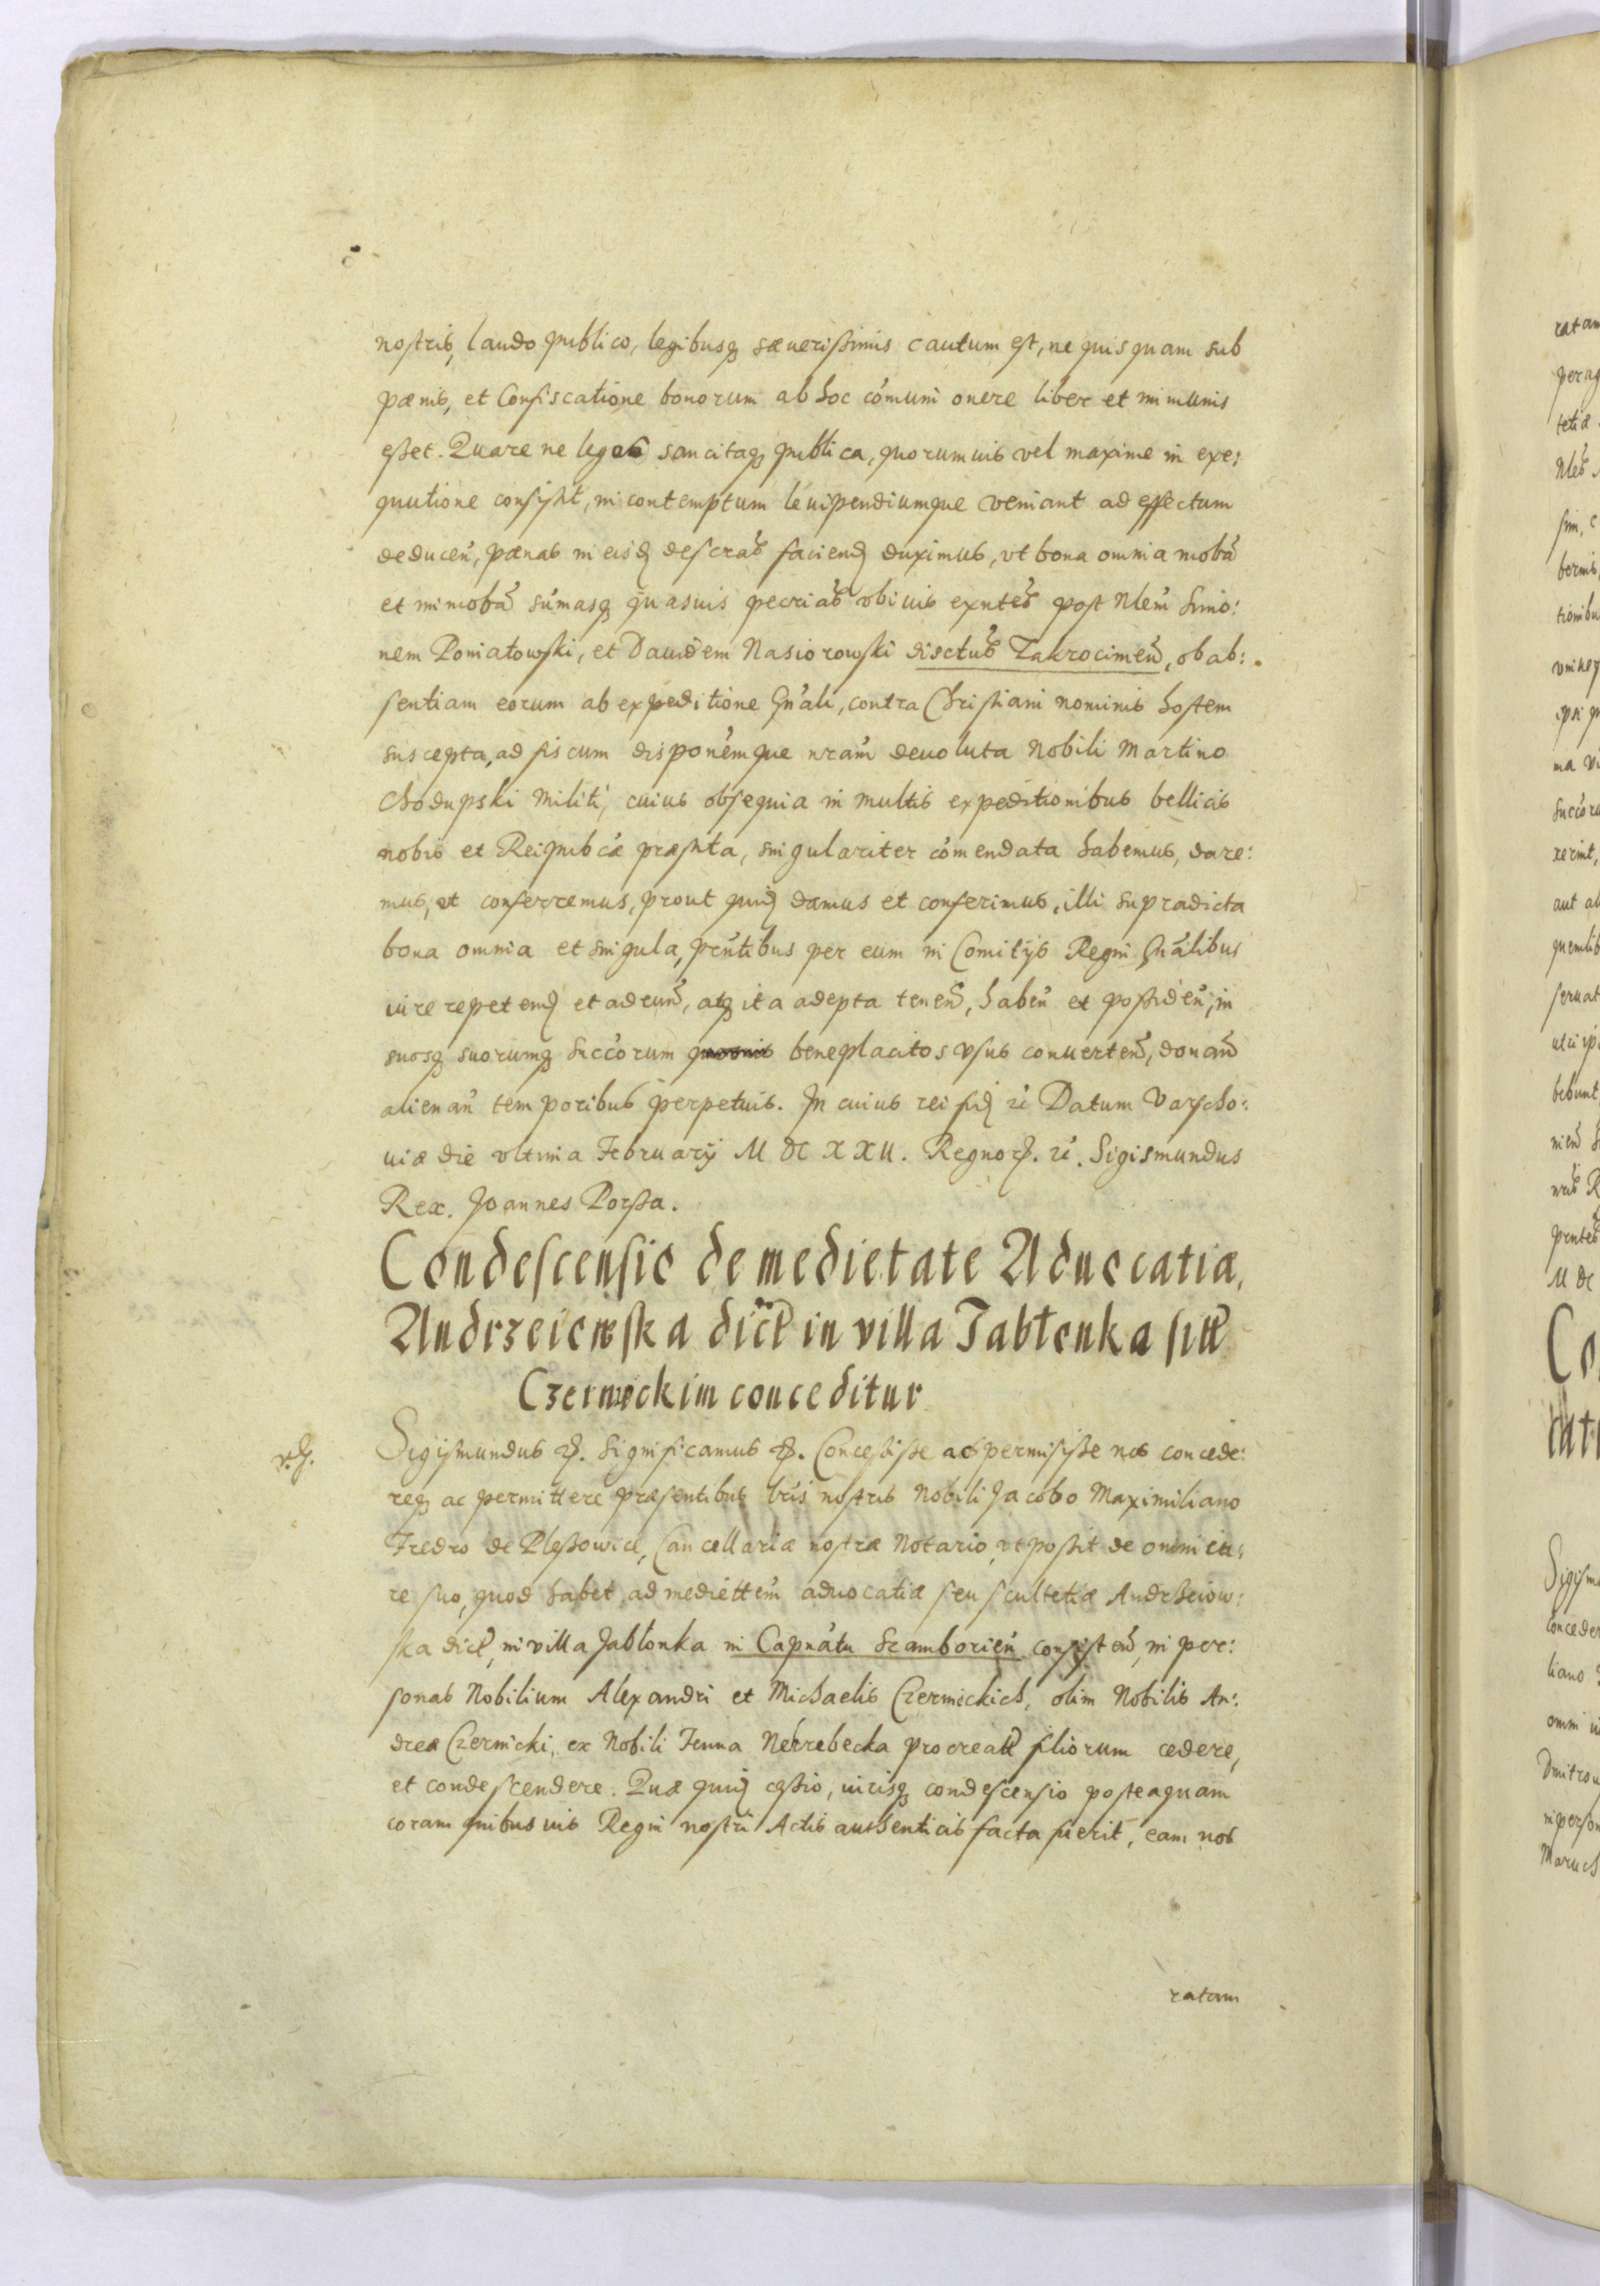 nostris, laudo publico, legibusq; sæuerissimis cautum est, ne quisquam sub
pænis, et Confiscatione bonorum ab hoc comuni onere liber et immunis
esset. Quare ne leges sancitaq; publica, quorumuis vel maxime in exe:
quutione consistit, in contemptum leuipendiumque veniant ad effectum
deducen, pænas in eisd descrãs faciend duximus, vt bona omnia mobã
et immobã sumasq; quasuis pecriãs vbiuis exntes post Nlem Simo:
nem Poniatowski, et Dauidem Nasiorowski disctus Zakrocimen, ob ab:
sentiam eorum ab expeditione Gnãli, contra Christiani nominis hostem
suscepta, ad fiscum disponemque nram deuoluta Nobili Martino
Chodupski Militi, cuius obsequia in multis expeditionibus bellicis
nobis et Reipubcæ præstita, singulariter comendata habemus, dare:
mus, et conferremus, prout quid damus et conferimus, illi supradicta
bona omnia et singula, prntibus per eum in Comitijs Regni Gnãlibus
iure repetend et adeund, atq; ita adepta tenend, haben et possiden, in
suosq; suorumq; succorum beneplacitos vsus conuerten, donan
alienan temporibus perpetuis. In cuius rei fid etc Datum Varscho:
uiæ die vltima February M DC XXII. Regnor. etc. Sigismundus
Rex. Joannes Porssa.
Condescensio de medietate Aduocatiæ,
Andrzeiewska dict in villa Jabłonka sitt
Czernieckim conceditur
Sigismundus etc. Significamus etc. Concessisse ac permisisse nos concede:
req; ac permittere præsentibus lris nostris Nobili Jacobo Maximiliano
Fredro de Plessowice, Cancellariæ nostræ Notario, vt possit de omni iu:
re suo, quod habet ad mediettem aduocatiæ seu scultetiæ Andrzeiow:
ska dict, in villa Jabłonka in Capnatu Samborien consisten, in per:
sonas Nobilium Alexandri et Michaelis Czernickich, olim Nobilis An:
dreæ Czernicki, ex Nobili Fenna procreatt filiorum cedere,
et condescendere. Quæ quid cessio, iurisq; condescensio posteaquam
coram quibusuis Regni nostri Actis authenticis facta fuerit, eam nos
ratam